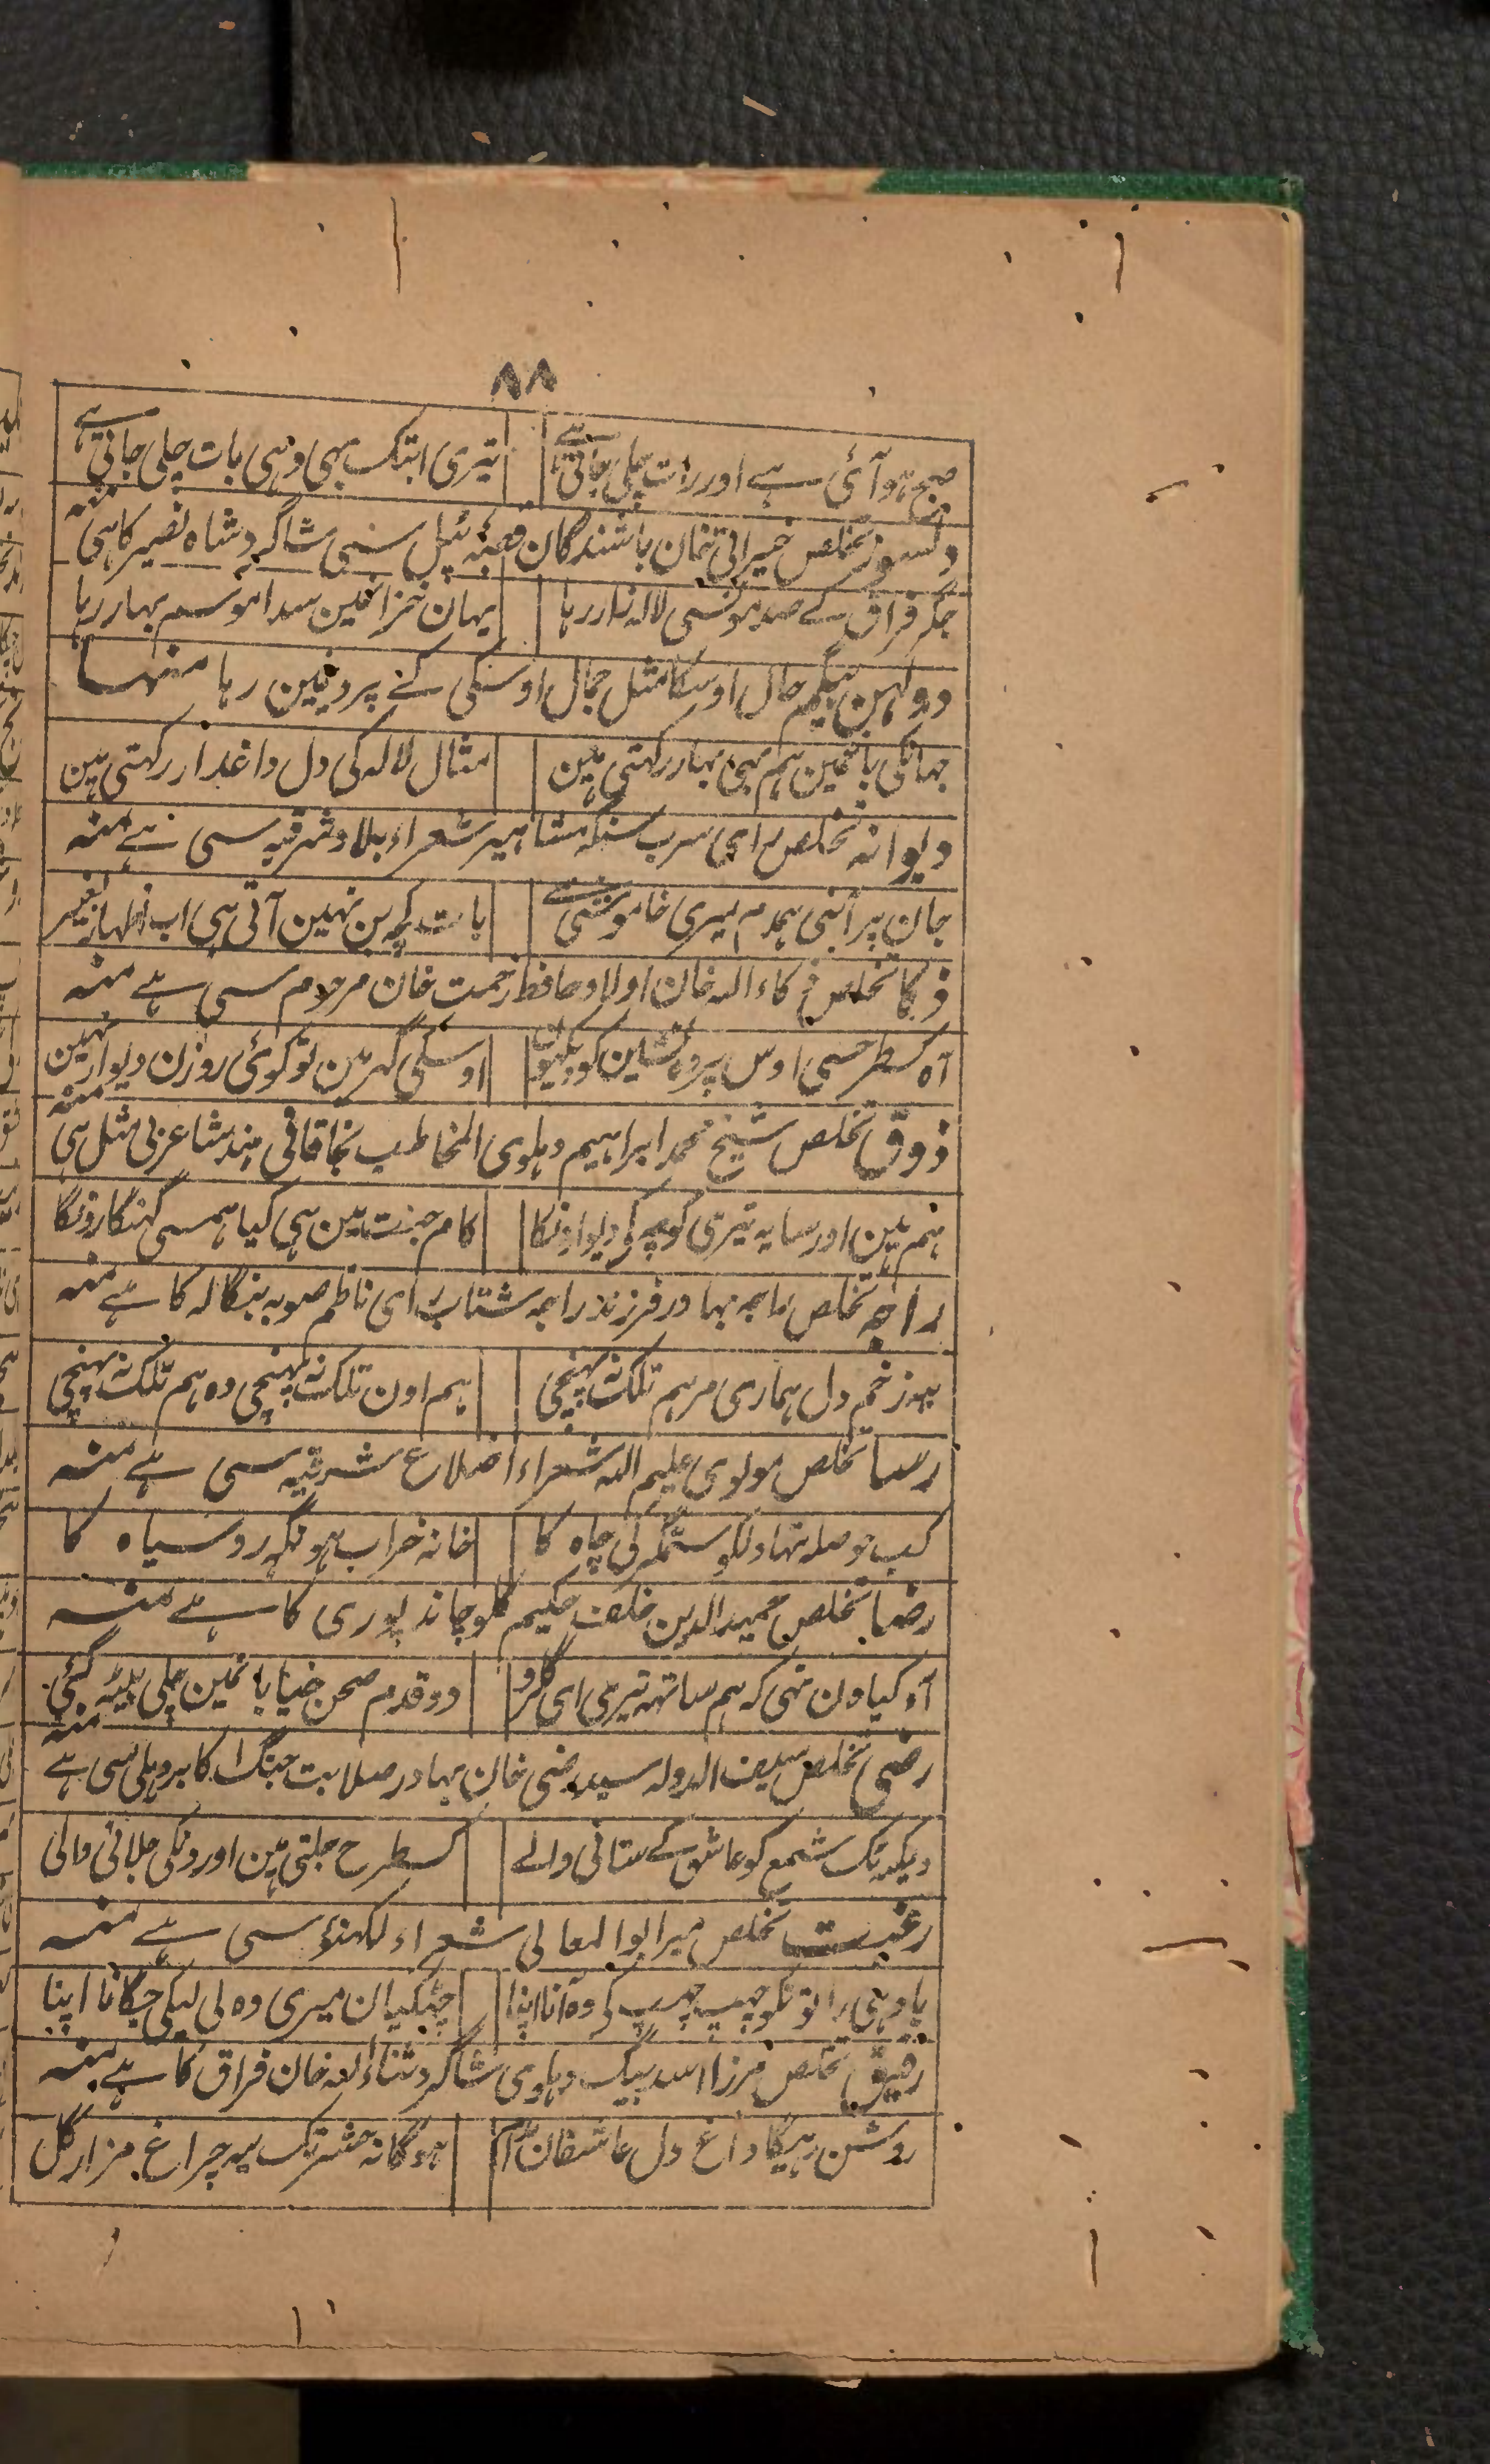 ۸۸
صبح ہو آئی ہے اور رات چلی جاتی ہے تیری ابتک بہی وہی بات چلی جاتی ہے
دلسوز تخلص خیراتی خان باشندگان قصبہ سی شاگرد شاہ نصیر کا ہی منہ
جگر فراق کے صدمونسی لالہ زار رہا یہان خزانمین سدا موسم بہار رہا
دولہن بیگم حال اوسکا مثل جمال اوسکی کے پردیمین رہا منہا
جہانکی باغمین ہم بہی بہار رکہتی ہین مثال لالہ کی دل داغدار رکہتی ہین
دیوانہ تخلص رای سرب سنگہ مشاہیر شعراء بلاد شرقیہ سی ہے منہ
جان پر آبنی ہمدم میری خاموشی سے بات کچہ بن نہین آتی ہی اب اظہار بغیر
ذکا تخلص ذکاء اللہ خان اولاد حافظ رحمت خان مرحوم سی ہے منہ
آہ کسطرحسی اوس پردہ نشین کو دیکہون اوسکی گہر مین تو کوئی روزن دیوار نہین
ذوق تخلص شیخ محمد ابراہیم دہلوی المخاطب بخاقانی ہند شاعر بی مثل ہی منہ
ہم ہین اور سایہ تیری کوچہ کی دیوارونکا کام جنت مین ہی کیا ہمسی گنہگارونکا
راجہ تخلص راجہ بہادر فرزند راجہ شتاب رای ناظم صوبہ بنگالہ کا ہے منہ
یہہ زخم دل ہماری مرہم تلک نہ پہنچی ہم اون تلک نہ پہنچی وہ ہم تلک نہ پہنچی
رسا تخلص مولوی علیم اللہ شعراء اضلاع شرقیہ سی ہے منہ
کب حوصلہ تہا دلکو ستمگر کی چاہ کا خانہ خراب ہو نگہہ روسیاہ کا
رضا تخلص حمید الدین خلف حکیم کلو چاند پوری کا ہے منہ
آہ کیا دن تہی کہ ہم ساتہہ تیری ای گلرو دو قدم صحن خیابانمین چلی بیٹہہ گئی
رضی تخلص سیف الدولہ سید رضی خان بہادر صلابت جنگ اکابر دہلی سی ہے منہ
دیکہہ ٹک شمع کو عاشق کے ستانی والے کسطرح جلتی ہین اورونکی جلانی والی
رغبت تخلص میر ابو المعالی شعراء لکہنؤ سی ہے منہ
یاد ہی راتونکو چہپ چہپ کی وہ آنا اپنا چٹکیان میری وہ لی لیکی جگانا اپنا
رفیق تخلص مرزا اسد بیگ دہلوی شاگرد ثناء اللہ خان فراق کا ہے منہ
روشن رہیگا داغ دل عاشقان مدام ہوگا نہ حشر تک یہ چراغ مزار گل